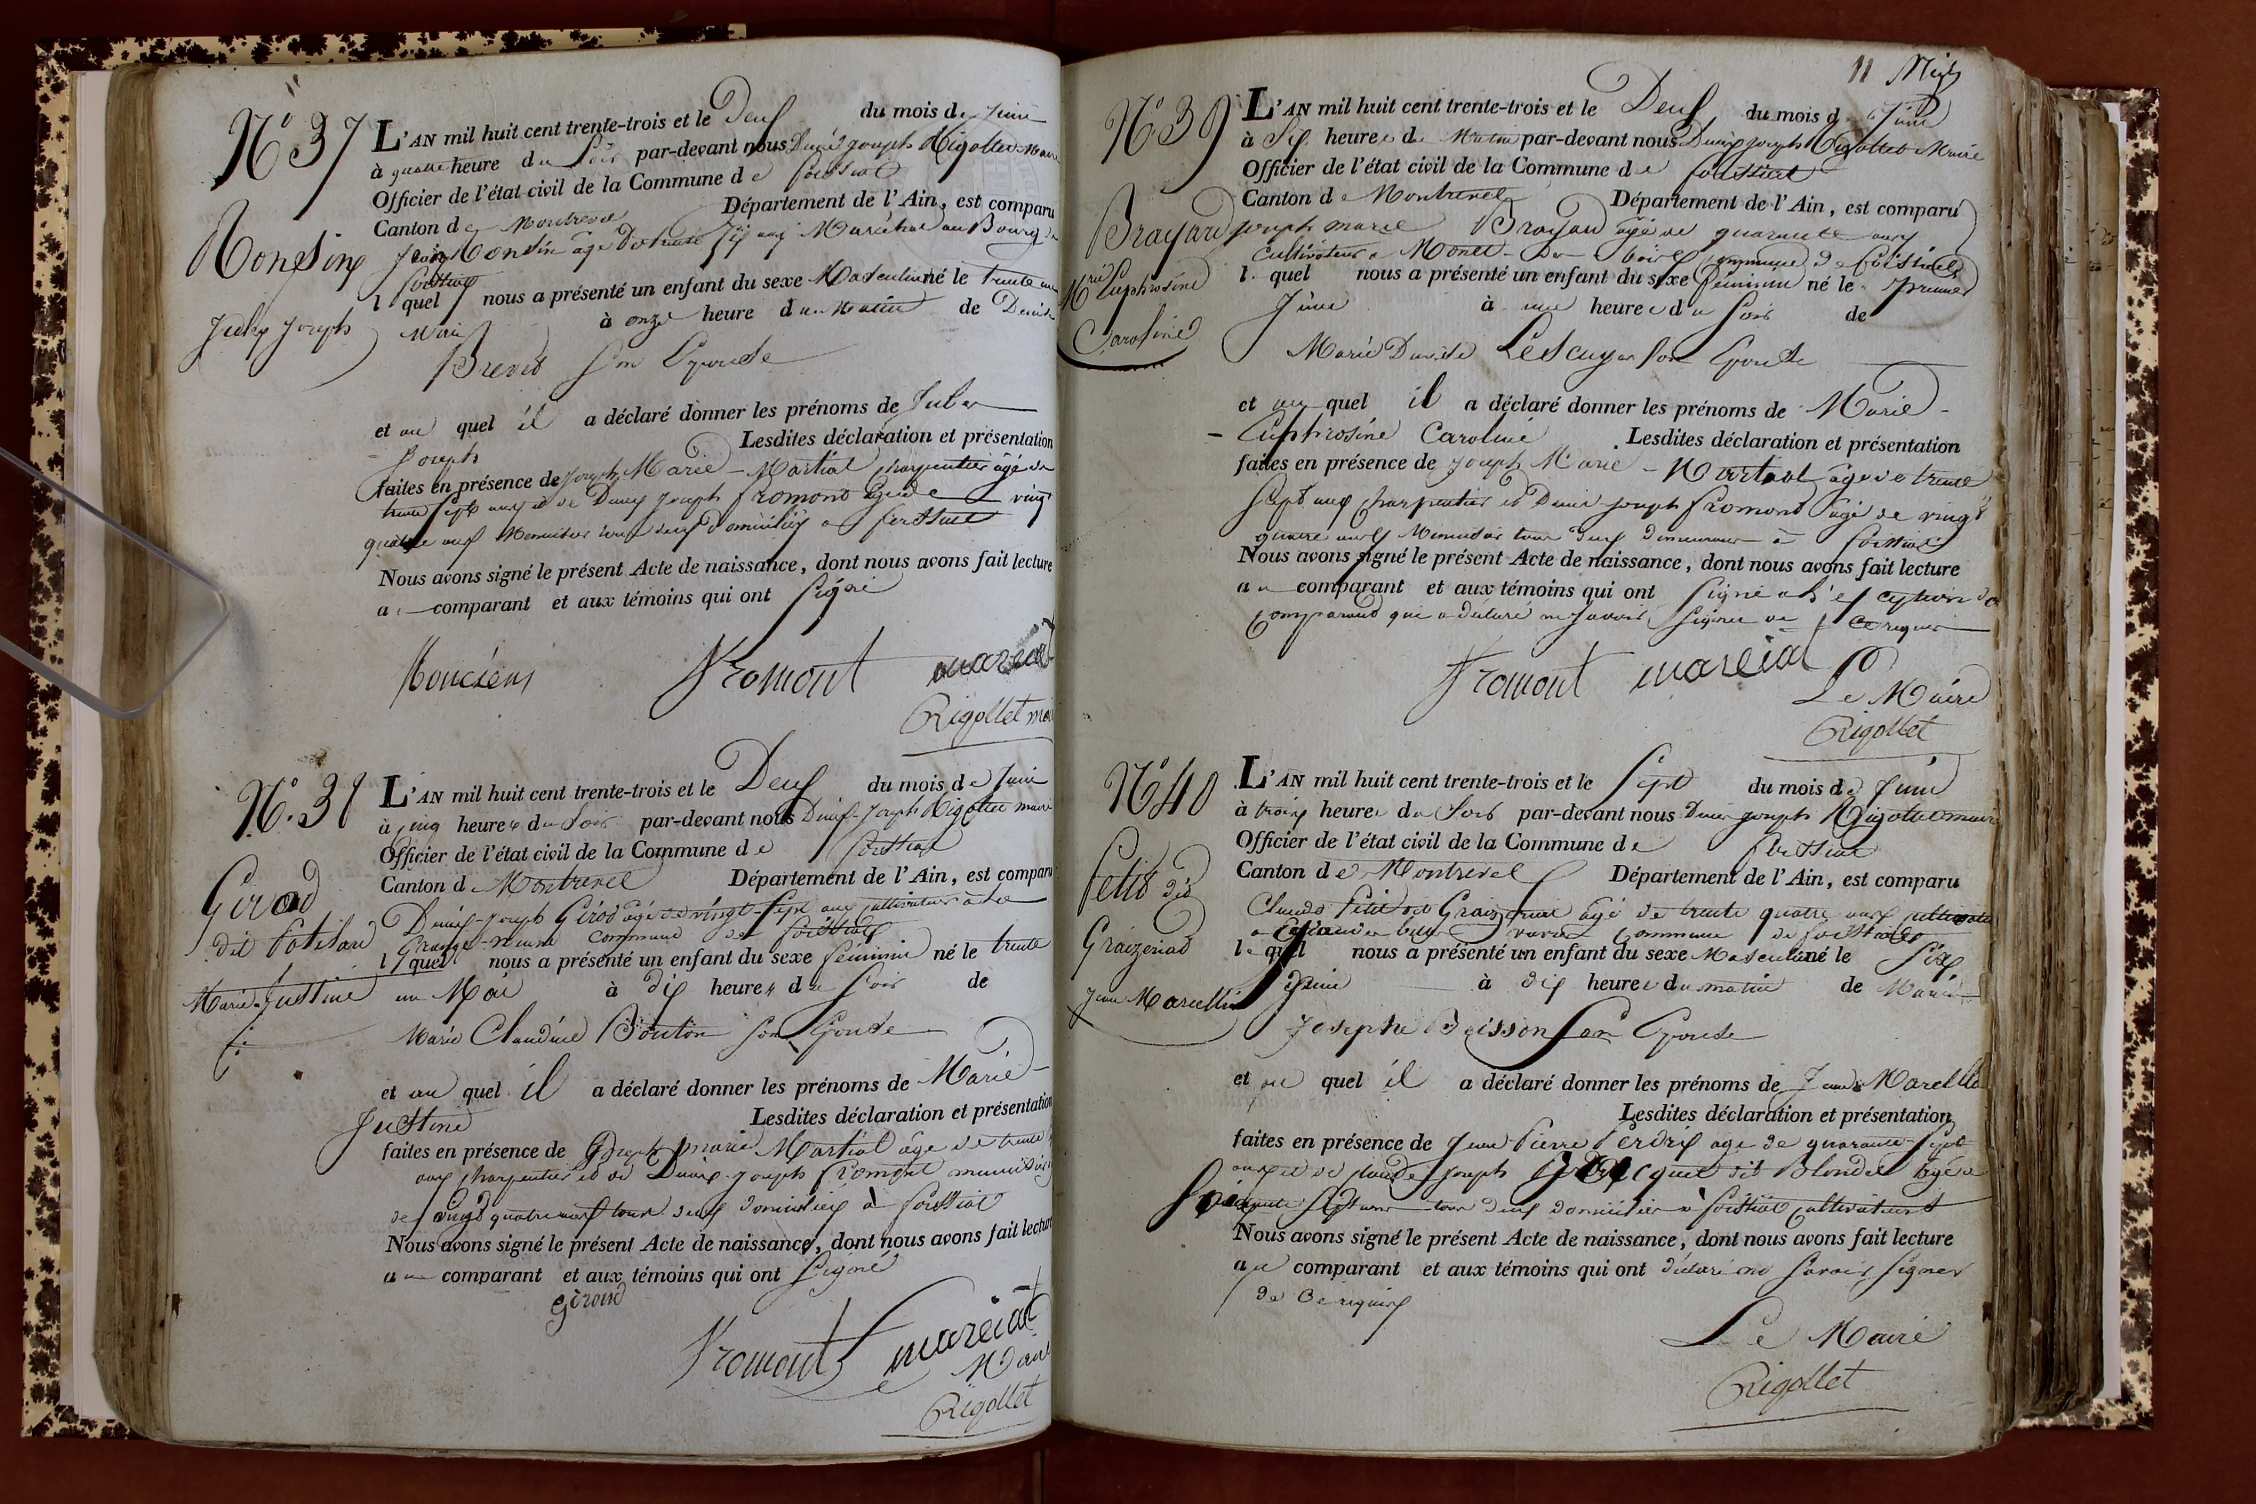 N° 37
L'AN mil huit cent trente-trois et le Deux du mois de Juin
à quatre heure du Soir par-devant nous Denis joseph Rigollet Maire
Officier de l'état civil de la Commune de foissiat
Canton de Montrevel Département de l'Ain, est comparu
Monsin âgé de trente Six ans Maréchal au Bourg de
foissiat
l quel nous a présenté un enfant du sexe Masculin né le trente un
Mai à onze heure du Matin de Denise
Brevet Son Epouse
et au quel il a déclaré donner les prénoms de Jules
Joseph Lesdites déclaration et présentation
faites en présence de Joseph Marie Martial charpentier âgé de
trente sept ans et de Denis Joseph fromont âgé de vingt
quatre ans Menuisier tous deux domiciliés a foissiat
Nous avons signé le présent Acte de naissance, dont nous avons fait lecture
au comparant et aux témoins qui ont Signé
Fromont mareial
Rigollet
Jules Joseph
N° 38
L'AN mil huit cent trente-trois et le Deux du mois de Juin
à cinq heures du Soir par-devant nous Denis-Joseph Rigollet maire
Officier de l'état civil de la Commune de foissiat
Canton de Montrevel Département de l'Ain, est comparu
Denis-Joseph Girod âgé de vingt-Sept ans cultivateur à la
Grange-neuve commune de foissiat
l quel nous a présenté un enfant du sexe féminin né le trente
un Mai à dix heures du Soir de
Marie Claudine Bouton Son Epouse
et au quel il a déclaré donner les prénoms de Marie-
Justine Lesdites déclaration et présentation
faites en présence de Joseph marie Martial âgé de trente
ans charpentier et de Denis-joseph fromont menuisier
de vingt quatre ans tous deux domiciliés à foissiat
Nous avons signé le présent Acte de naissance, dont nous avons fait lecture
au comparant et aux témoins qui ont Signé
Girod
Fromont mareiat
Le Maire
Rigollet
Girod
dit
Marie Justine
11
N° 39
L'AN mil huit cent trente-trois et le Deux du mois de Juin
à Six heures du Matin par-devant nous Denis joseph Rigollet Maire
Officier de l'état civil de la Commune de foissiat
Canton de Montrevel Département de l'Ain, est comparu
joseph marie Brayard âgé de quarante ans
Cultivateur a commune de foissiat
le quel nous a présenté un enfant du sexe féminin né le premier
Juin à une heure du Soir de
Marie Denise Lescuyer Son Epouse
et au quel il a déclaré donner les prénoms de Marie-
Euphrosine Caroline Lesdites déclaration et présentation
faites en présence de Joseph Marie Martial âgé de trente
Sept ans charpentier et Denis Joseph fromont âgé de vingt
quatre ans Menuisier tous deux demeurant à foissiat
Nous avons signé le présent Acte de naissance, dont nous avons fait lecture
au comparant et aux témoins qui ont Signé a l'exception du
comparant qui a déclaré ne Savoir Signer de ce requis
Fromont mareial
Le Maire
Rigollet
Brayard
Mrie Euphrosine
Caroline
N° 40
L'AN mil huit cent trente-trois et le Sept du mois de Juin
à trois heures du Soir par-devant nous Denis joseph Rigollet maire
Officier de l'état civil de la Commune de foissiat
Canton de Montrevel Département de l'Ain, est comparu
Claude Petit dit Graizeriat âgé de trente quatre ans cultivateur
commune de foissiat
le quel nous a présenté un enfant du sexe Masculin né le Six
Juin à dix heures du matin de Marie
Josephe Buisson Son Epouse
et au quel il a déclaré donner les prénoms de Jean Marcellin
Lesdites déclaration et présentation
faites en présence de Jean Pierre Perdrix âgé de quarante-Sept
ans et de Claude Joseph dit Blondel âgé de
Soixante tous deux domiciliés à foissiat cultivateurs
Nous avons signé le présent Acte de naissance, dont nous avons fait lecture
au comparant et aux témoins qui ont déclaré ne Savoir Signer
de ce requis
Le Maire
Rigollet
Petit dit
Graizeriat
Jean Marcellin